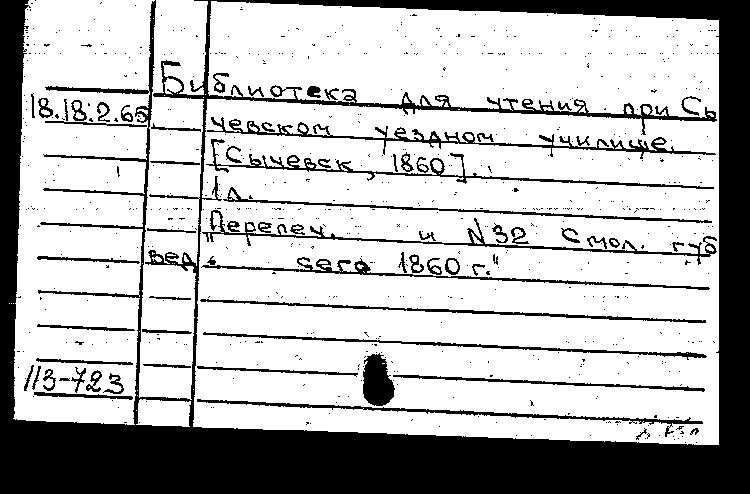 Библиотека для чтения при Сы
18.18.2.65
чевском уездном училище.
[Сычевск, 1860].
1 л.
"Перепеч. и N 32 Смол. губ
вед. сего 1860 г."
113-723